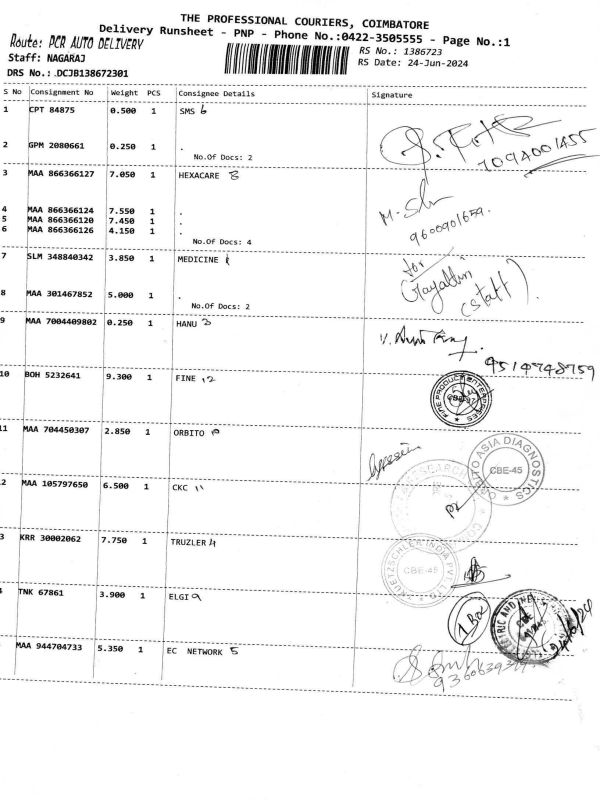 THE PROFESSIONAL COURIERS, COIMBATORE
Delivery Runsheet - PNP - Phone No.:0422-3505555 - Page No.:1
Route: PCR AUTO DELIVERY
RS No.: 1386723
Staff: NAGARAJ
RS Date: 24-Jun-2024
DRS No.: DCJB138672301
S No Consignment No Weight PCS Consignee Details Signature
1 CPT 84875 0.500 1 SMS 6
2 GPM 2080661 0.250 1 .
No.Of Docs: 2
7094001455
3 MAA 866366127 7.050 1 HEXACARE 8
4 MAA 866366124 7.550 1 .
5 MAA 866366120 7.450 1 .
6 MAA 866366126 4.150 1 .
No.Of Docs: 4
9600901659.
7 SLM 348840342 3.850 1 MEDICINE
for
8 MAA 301467852 5.000 1 .
No.Of Docs: 2
(Staff)
9 MAA 7004409802 0.250 1 HANU 3
9514748759
10 BOH 5232641 9.300 1 FINE 12
FINE PRODUCT ENTERPRISES
11 MAA 704450307 2.850 1 ORBITO
ORBITO ASIA DIAGNOSTICS
CBE-45
2 MAA 105797650 6.500 1 CKC 11
3 KRR 30002062 7.750 1 TRUZLER 4
CBE-45
TNK 67861 3.900 1 ELGI 9
1 Box
24/6/24
MAA 944704733 5.350 1 EC NETWORK 5